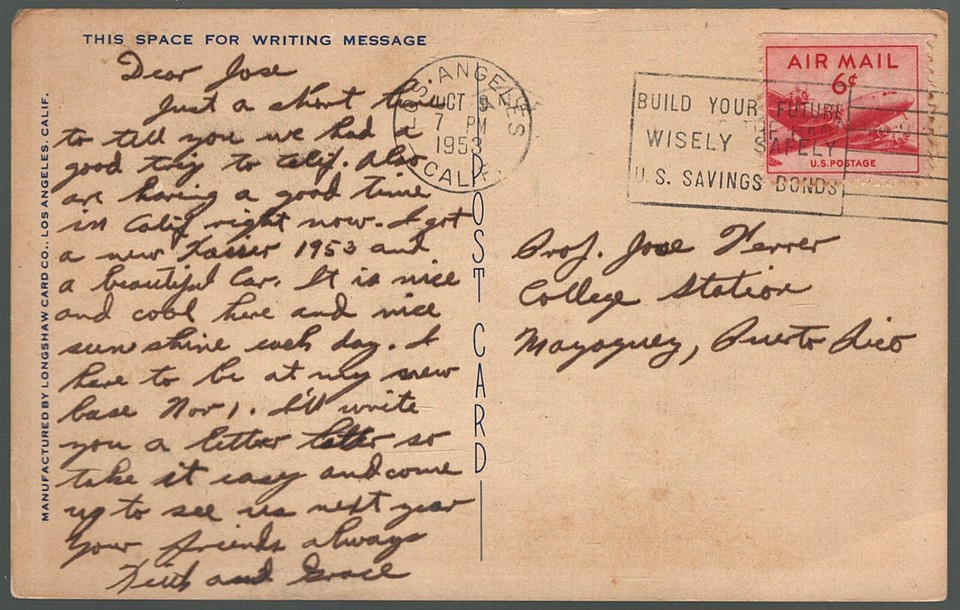 THIS SPACE FOR WRITING MESSAGE
Dear Jose
Just a short time
to tell you we had a
good trip to Calif. Also
are having a good time
in Calif right now. I got
a new Kaiser 1953 and
a beautiful Car. It is nice
and cool here and nice
sunshine each day. I
have to be at my new
base Nov 1. I'll write
you a letter later so
take it easy and come
up to see us next year
Your friends always
and Grace
MANUFACTURED BY LONGSHAW CARD CO., LOS ANGELES, CALIF.
POST CARD
LOS ANGELES
OCT 9
7 PM
1953
CALIF.
BUILD YOUR FUTURE
WISELY SAFELY
U.S. SAVINGS BONDS
AIR MAIL
6¢
U.S. POSTAGE
Prof. Jose Ferrer
College Station
Mayaguez, Puerto Rico